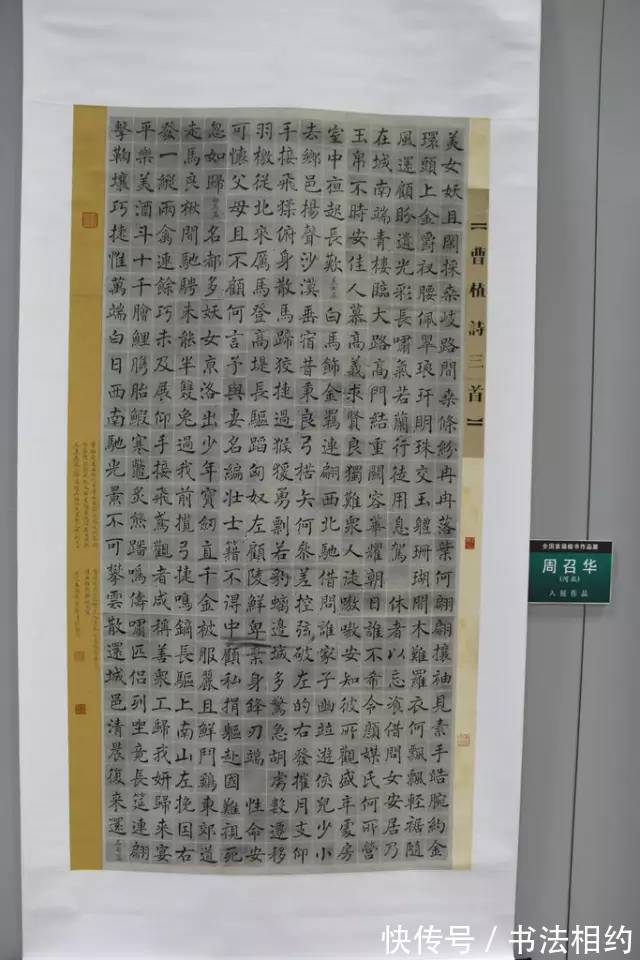 【曹植詩三首】
美女妖且閑採桑岐路間桑條紛冉冉落葉何翩翩攘袖見素手皓腕約金
環頭上金爵釵腰佩翠琅玕明珠交玉體珊瑚間木難羅衣何飄飄輕裾隨
風還顧盼遺光彩長嘯氣若蘭行徒用息駕休者以忘飡借問女安居乃
在城南端青樓臨大路高門結重關容華耀朝日誰不希令顏媒氏何所營
玉帛不時安佳人慕高義求賢良獨難衆人徒嗷嗷安知彼所觀盛年處房
室中夜起長歎美女篇白馬飾金羈連翩西北馳借問誰家子幽並遊俠兒少小
去鄉邑揚聲沙漠垂宿昔秉良弓楛矢何參差控弦破左的右發摧月支仰
手接飛猱俯身散馬蹄狡捷過猴猨勇剽若豹螭邊城多警急胡虜數遷移
羽檄從北來厲馬登高堤長驅蹈匈奴左顧陵鮮卑棄身鋒刃端性命安
可懷父母且不顧何言子與妻名編壯士籍不得中顧私捐軀赴國難視死
忽如歸名都多妖女京洛出少年寶劍直千金被服麗且鮮鬥鷄東郊道
走馬長楸間馳騁未能半雙兔過我前攬弓捷鳴鏑長驅上南山左挽因右
發一縱兩禽連餘巧未及展仰手接飛鳶觀者咸稱善衆工歸我妍歸來宴
平樂美酒斗十千膾鯉臇胎鰕寒鱉炙熊蹯鳴儔嘯匹侶列坐竟長筵連翩
擊鞠壤巧捷惟萬端白日西南馳光景不可攀雲散還城邑清晨復來還
全国首届楷书作品展
周召华
入展作品
快传号/书法相约